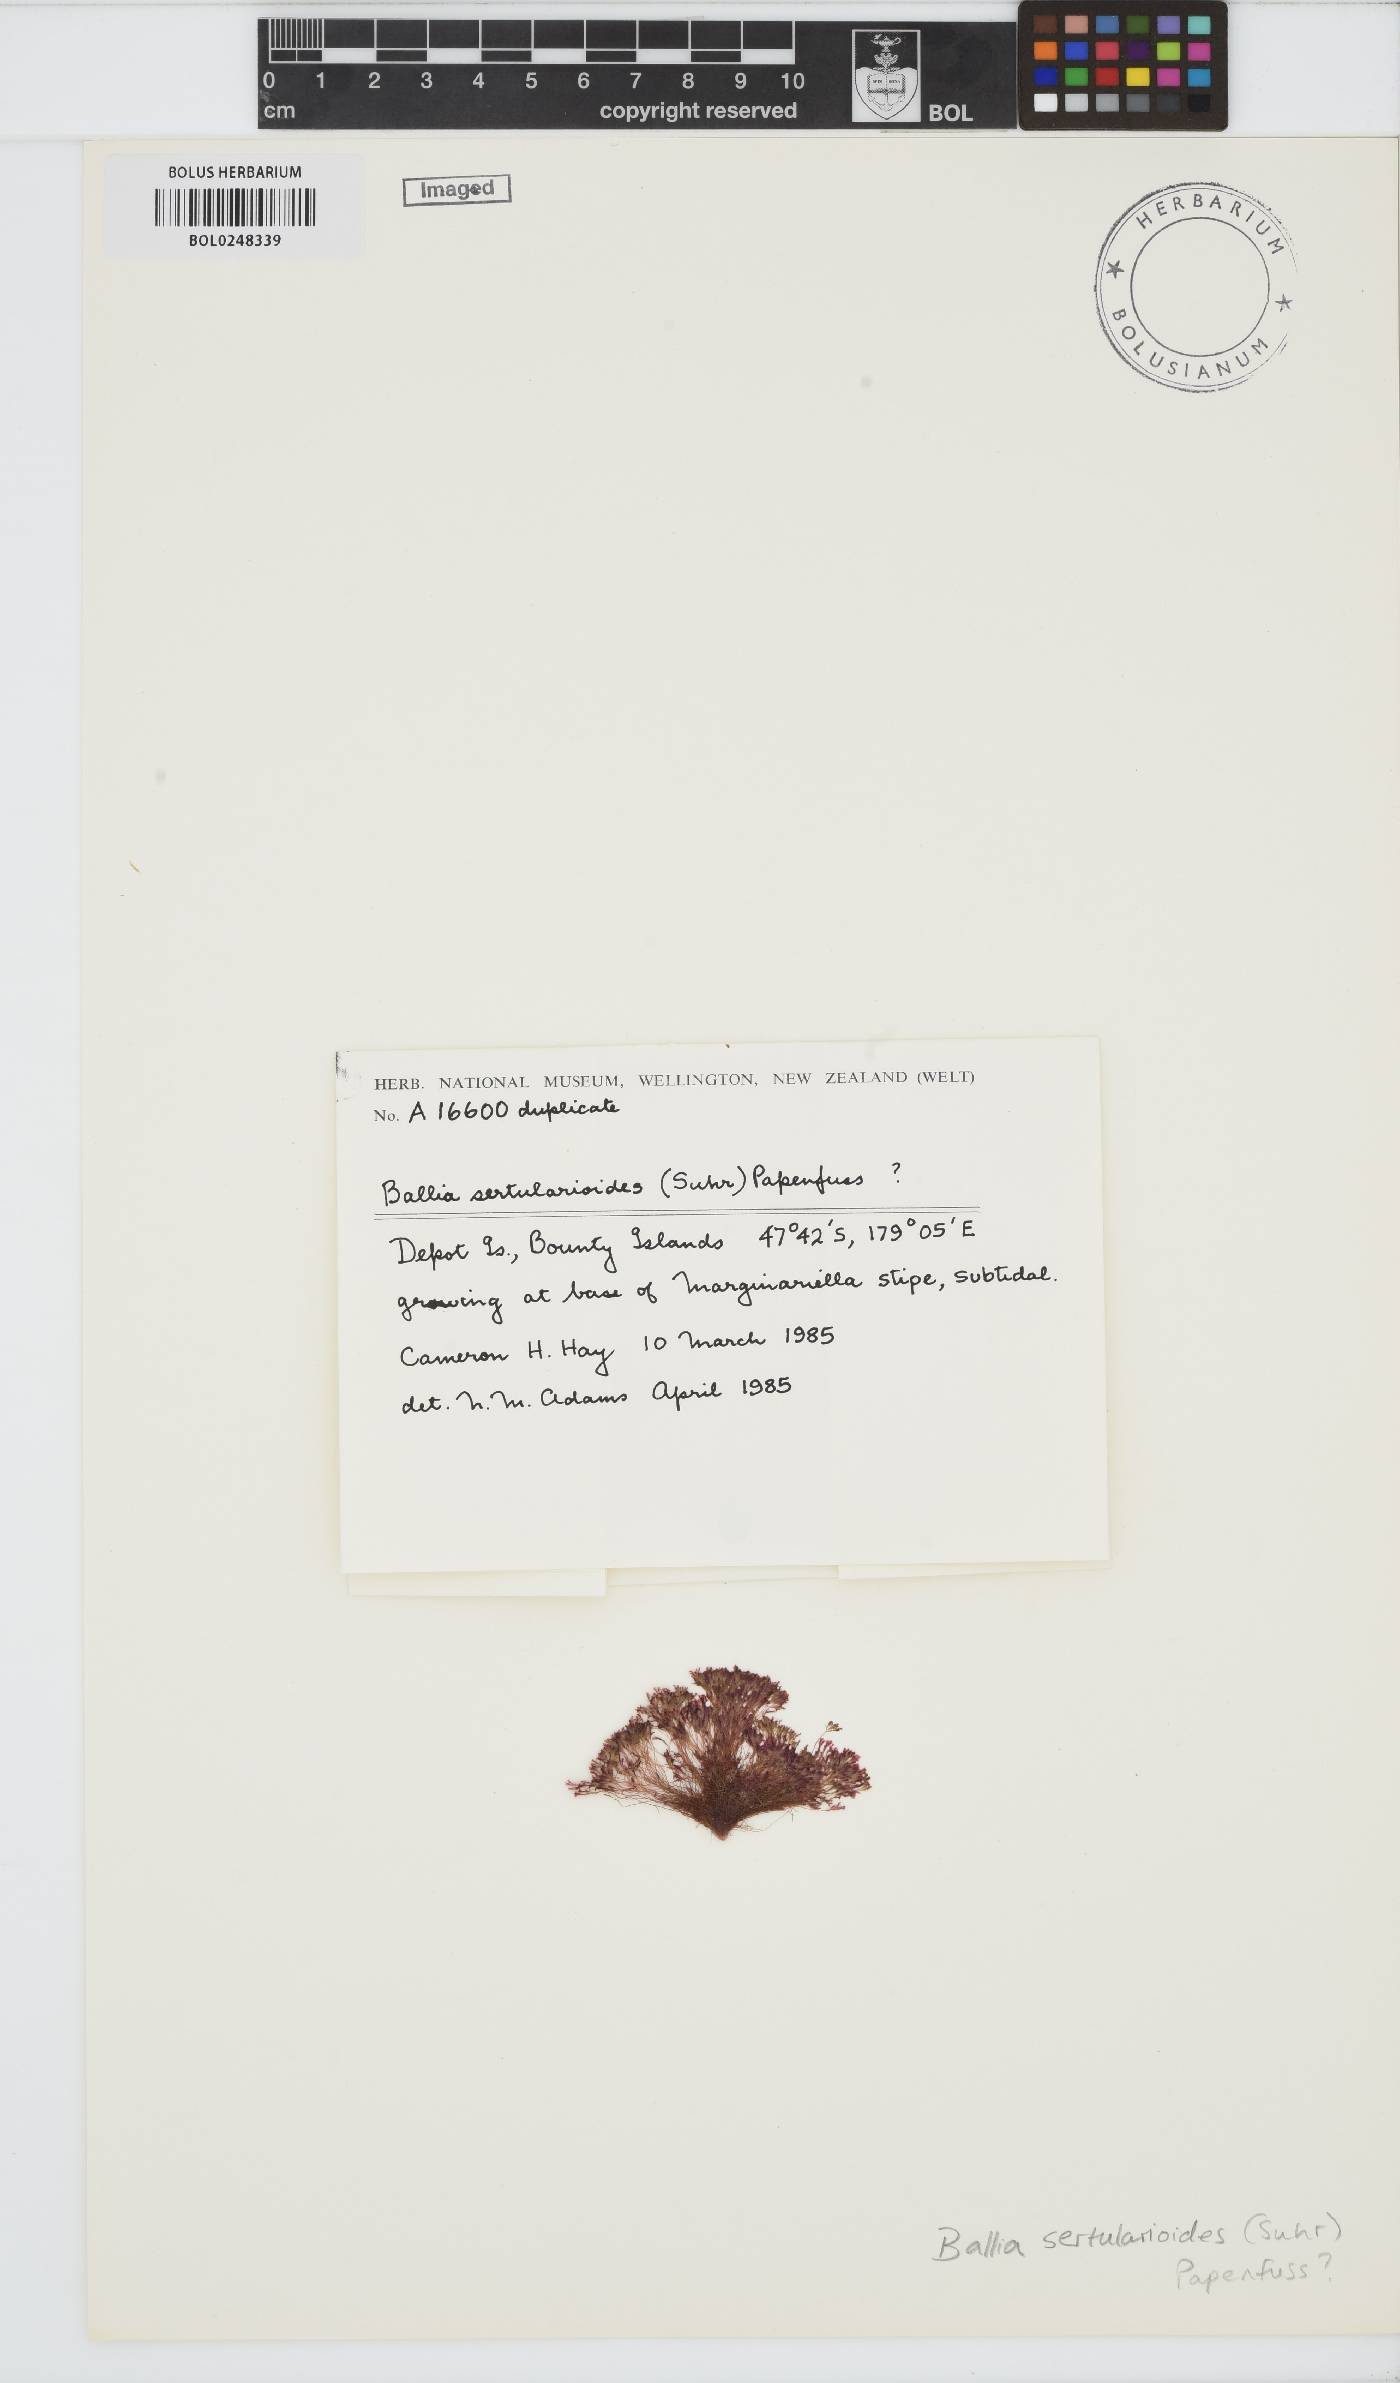 0 1 2 3 4 5 6 7 8 9 10
cm copyright reserved BOL
BOLUS HERBARIUM
BOL0248339
Imaged
HERBARIUM
BOLUSIANUM
HERB. NATIONAL MUSEUM, WELLINGTON, NEW ZEALAND (WELT)
No. A 16600 duplicate
Ballia sertularioides (Suhr) Papenfuss ?
Depot Is., Bounty Islands 47°42'S, 179°05'E
growing at base of Marginariella stipe, subtidal.
Cameron H. Hay 10 March 1985
det. N.M. Adams April 1985
Ballia sertularioides (Suhr)
Papenfuss?